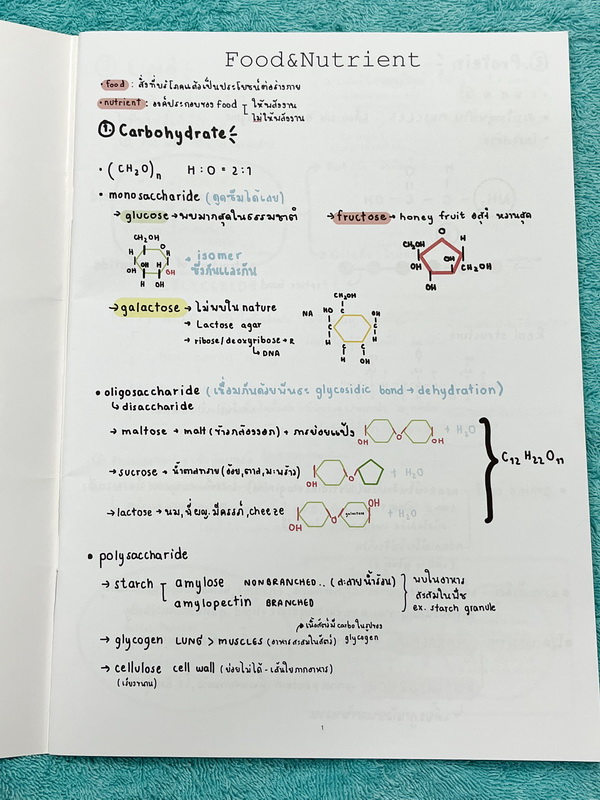 Food&Nutrient
• food : สิ่งที่บริโภคแล้วเป็นประโยชน์ต่อร่างกาย
• nutrient : องค์ประกอบของ food ให้พลังงาน
ไม่ให้พลังงาน
1. Carbohydrate
• (CH2O)n H : O = 2 : 1
• monosaccharide (ดูดซึมได้เลย)
→ glucose → พบมากสุดในธรรมชาติ → fructose → honey fruit อสุจิ หวานสุด
CH2OH
O
H
OH
• isomer
ซึ่งกันและกัน
O
CH2OH
H
OH
OH
CH2OH
OH
→ galactose → ไม่พบใน nature
→ Lactose agar
→ ribose/deoxyribose → R
↳ DNA
NA
CH2OH
HO
C
OH
H
• oligosaccharide (เชื่อมกันด้วยพันธะ glycosidic bond → dehydration)
↳ disaccharide
→ maltose → malt (ข้าวกล้องงอก) + การย่อยแป้ง OH O OH + H2O
→ sucrose → น้ำตาลทราย (อ้อย, ตาล, มะพร้าว) OH O + H2O
→ lactose → นม, ผู้หญิงมีครรภ์, cheeze OH O galactose OH + H2O
C12 H22 O11
• polysaccharide
→ starch amylose NONBRANCHED.. (ละลายน้ำร้อน)
amylopectin BRANCHED
พบในอาหาร
สะสมในพืช
ex. starch granule
เนื้อสัตว์มี carbo ในรูปของ
glycogen
→ glycogen LUNG > MUSCLES (อาหารสะสมในสัตว์)
→ cellulose cell wall (ย่อยไม่ได้ - เส้นใยกากอาหาร)
(เรียงขนาน)
1